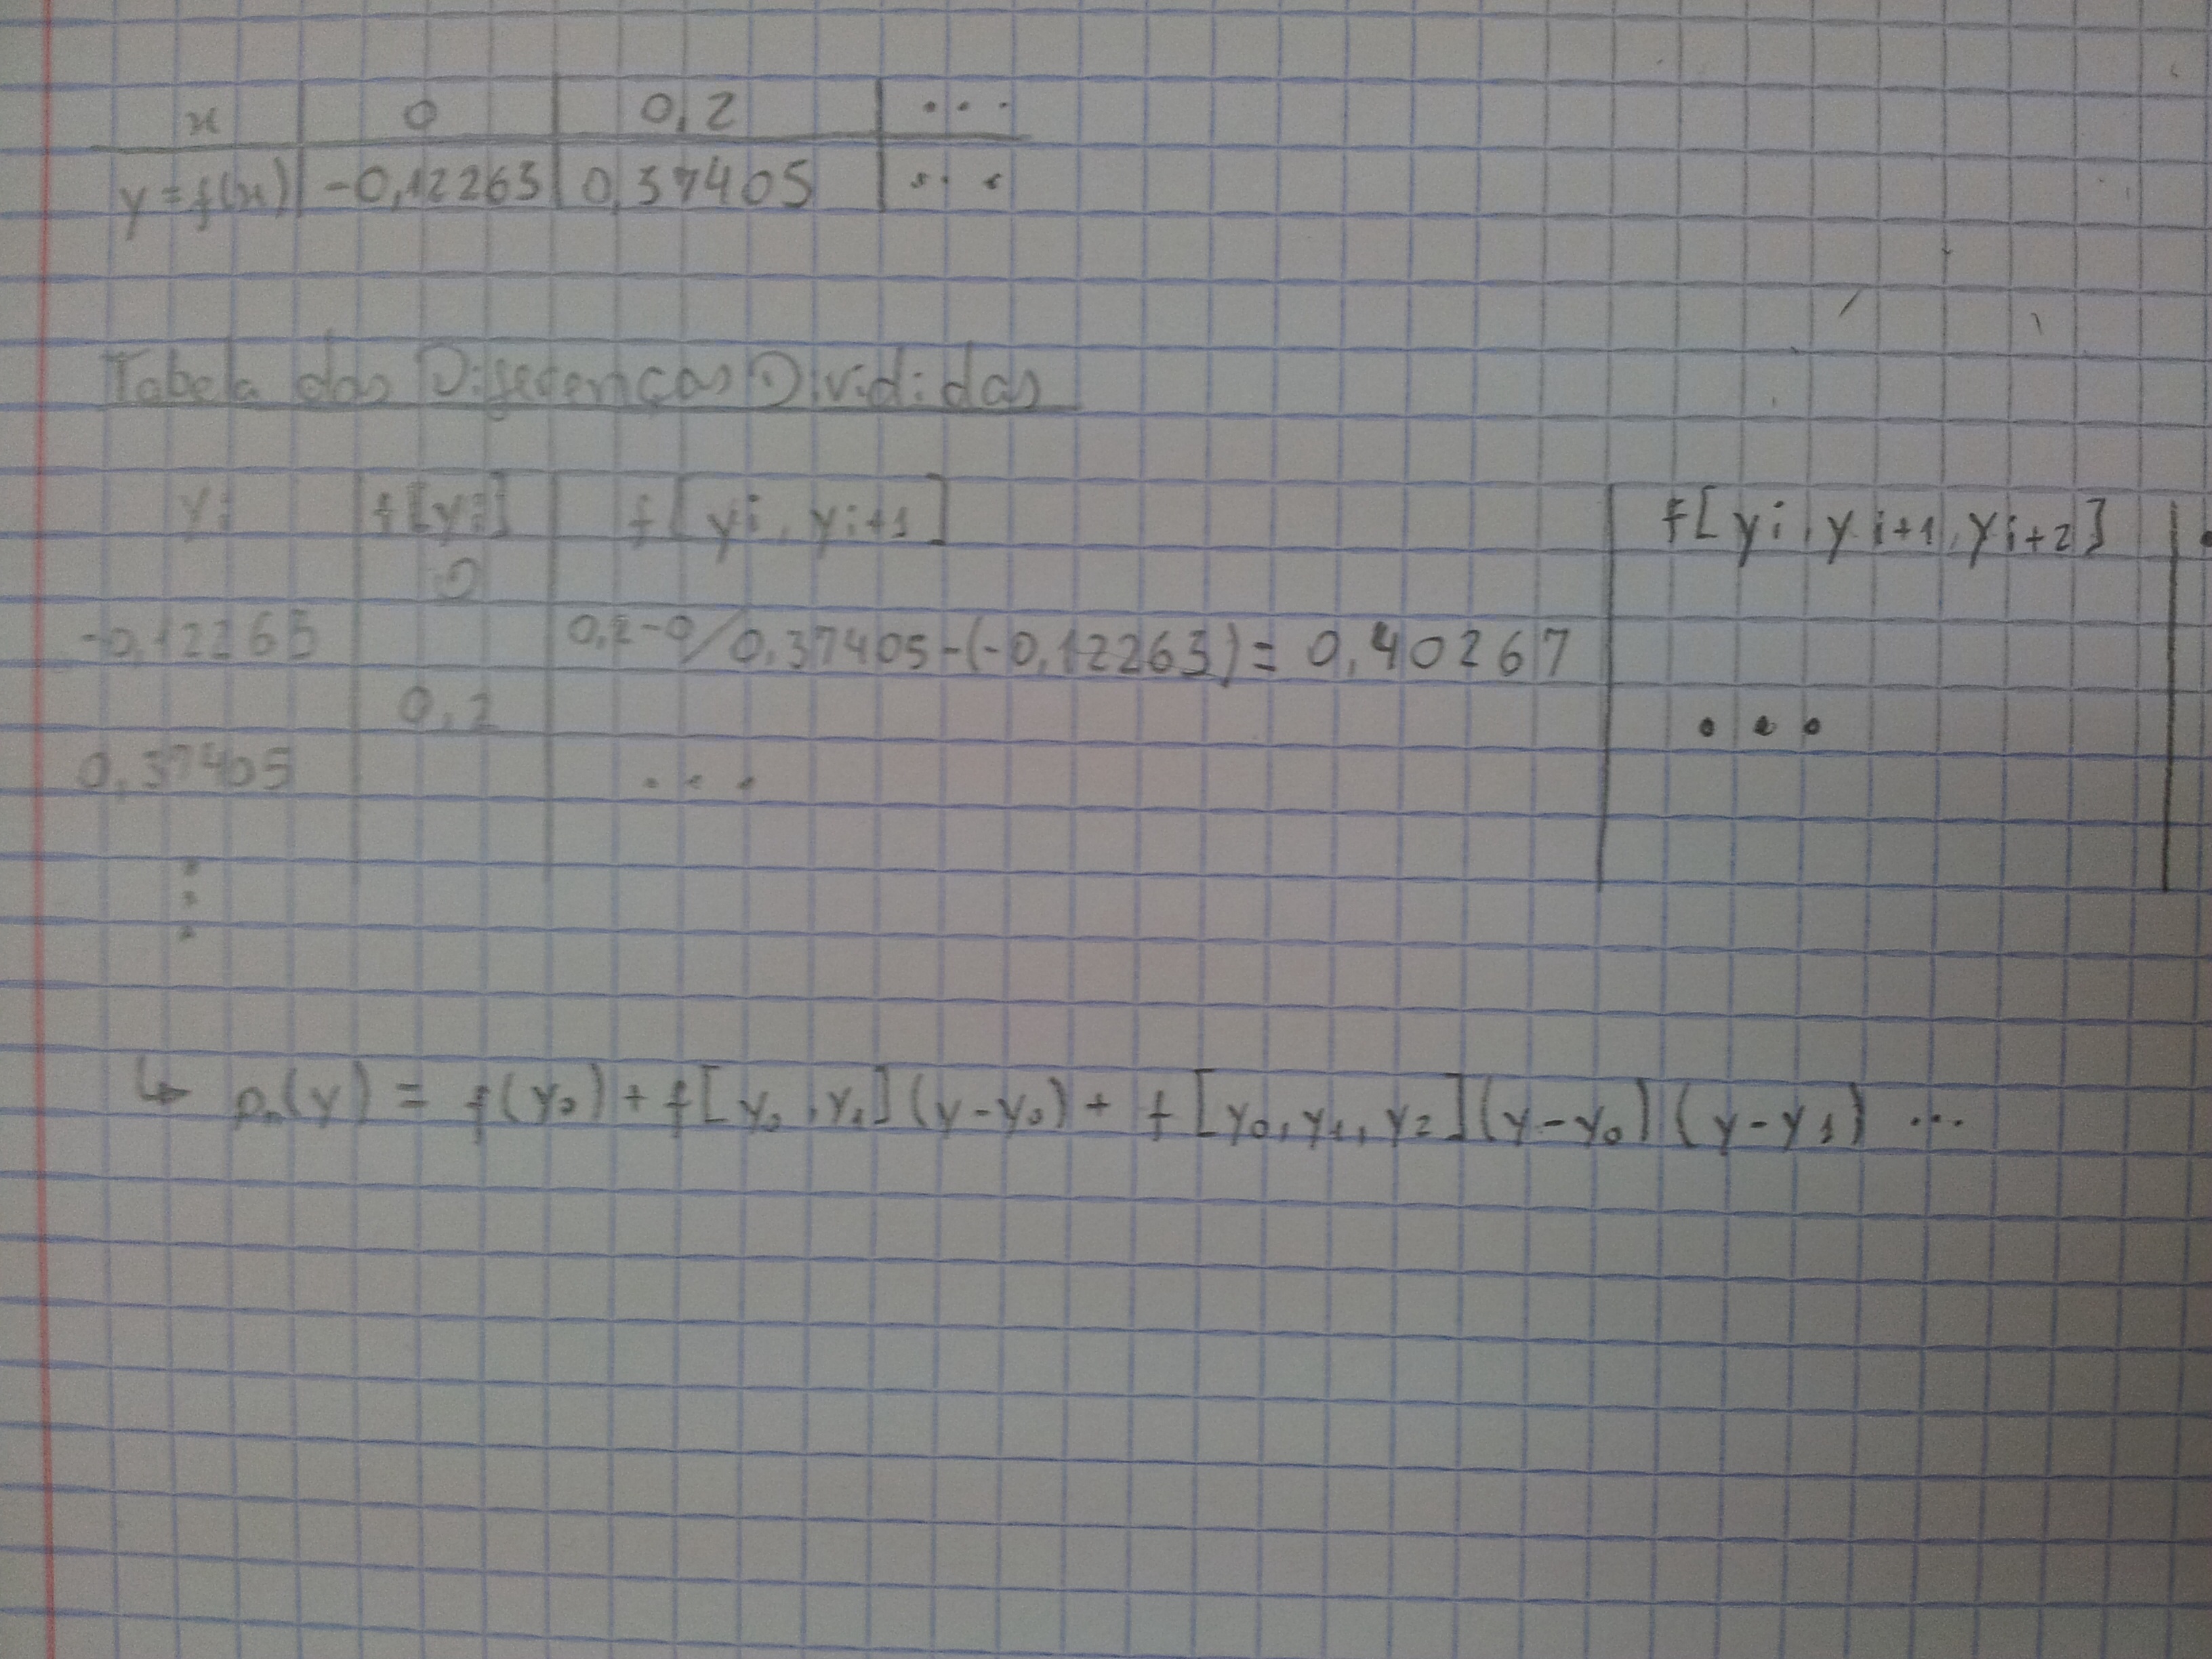 x 0 0,2 ...
y=f(x) -0,12263 0,37405 ...
Tabela das Diferenças Divididas
yi f[yi] f[yi, yi+1] f[yi, yi+1, yi+2]
0
-0,12263 0,2-0/0,37405-(-0,12263) = 0,40267
0,2 ...
0,37405 ...
↳ pn(y) = f(y0) + f[y0, y1](y-y0) + f[y0, y1, y2](y-y0)(y-y1) ...